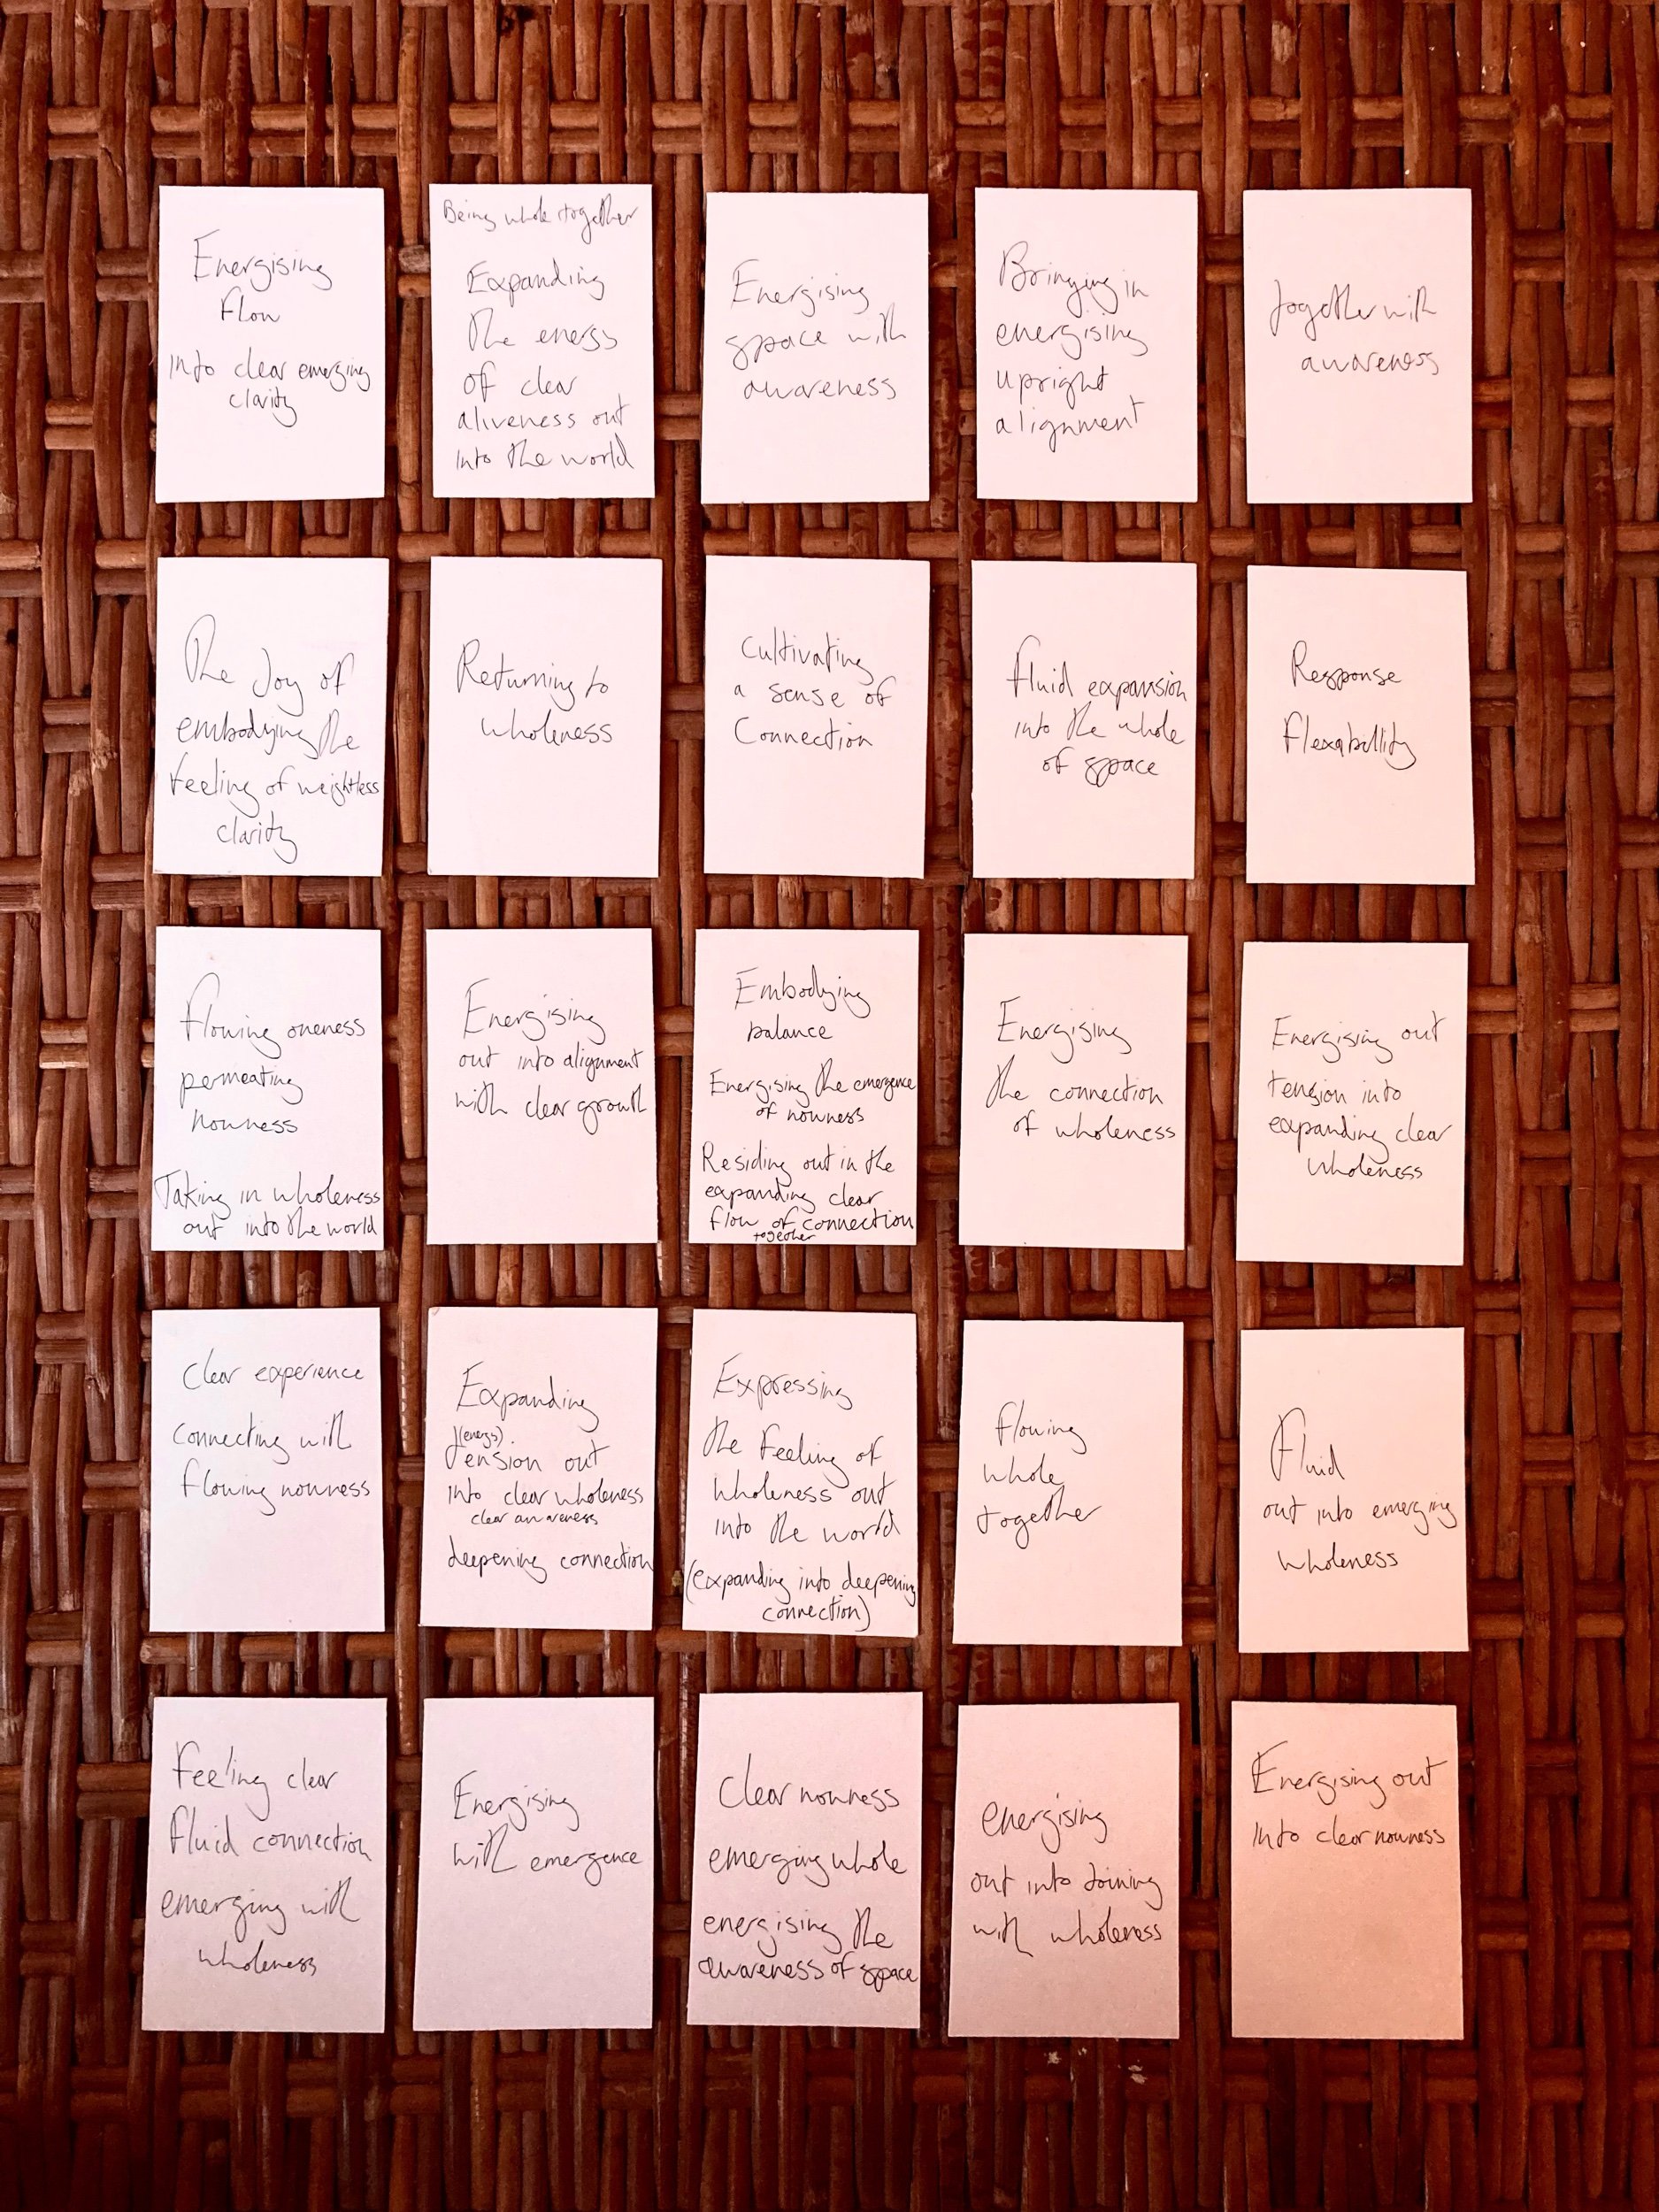 Energising
Flow
into clear emerging
clarity
Being whole together
Expanding
the energy
of clear
aliveness out
into the world
Energising
space with
awareness
Bringing in
energising
upright
alignment
together with
awareness
The Joy of
embodying the
feeling of weightless
clarity
Returning to
wholeness
Cultivating
a sense of
Connection
fluid expansion
into the whole
of space
Response
flexability
flowing oneness
permeating
nowness
Taking in wholeness
out into the world
Energising
out into alignment
with clear growth
Embodying
balance
Energising the emergence
of nowness
Residing out in the
expanding clear
flow of connection
together
Energising
the connection
of wholeness
Energising out
tension into
expanding clear
wholeness
Clear experience
connecting with
flowing nowness
Expanding
(energy)
Tension out
into clear wholeness
clear awareness
deepening connection
Expressing
the feeling of
wholeness out
into the world
(expanding into deepening
connection)
flowing
whole
together
Fluid
out into emerging
wholeness
Feeling clear
fluid connection
emerging with
wholeness
Energising
with emergence
Clear nowness
emerging whole
energising the
awareness of space
energising
out into joining
with wholeness
Energising out
into clear nowness